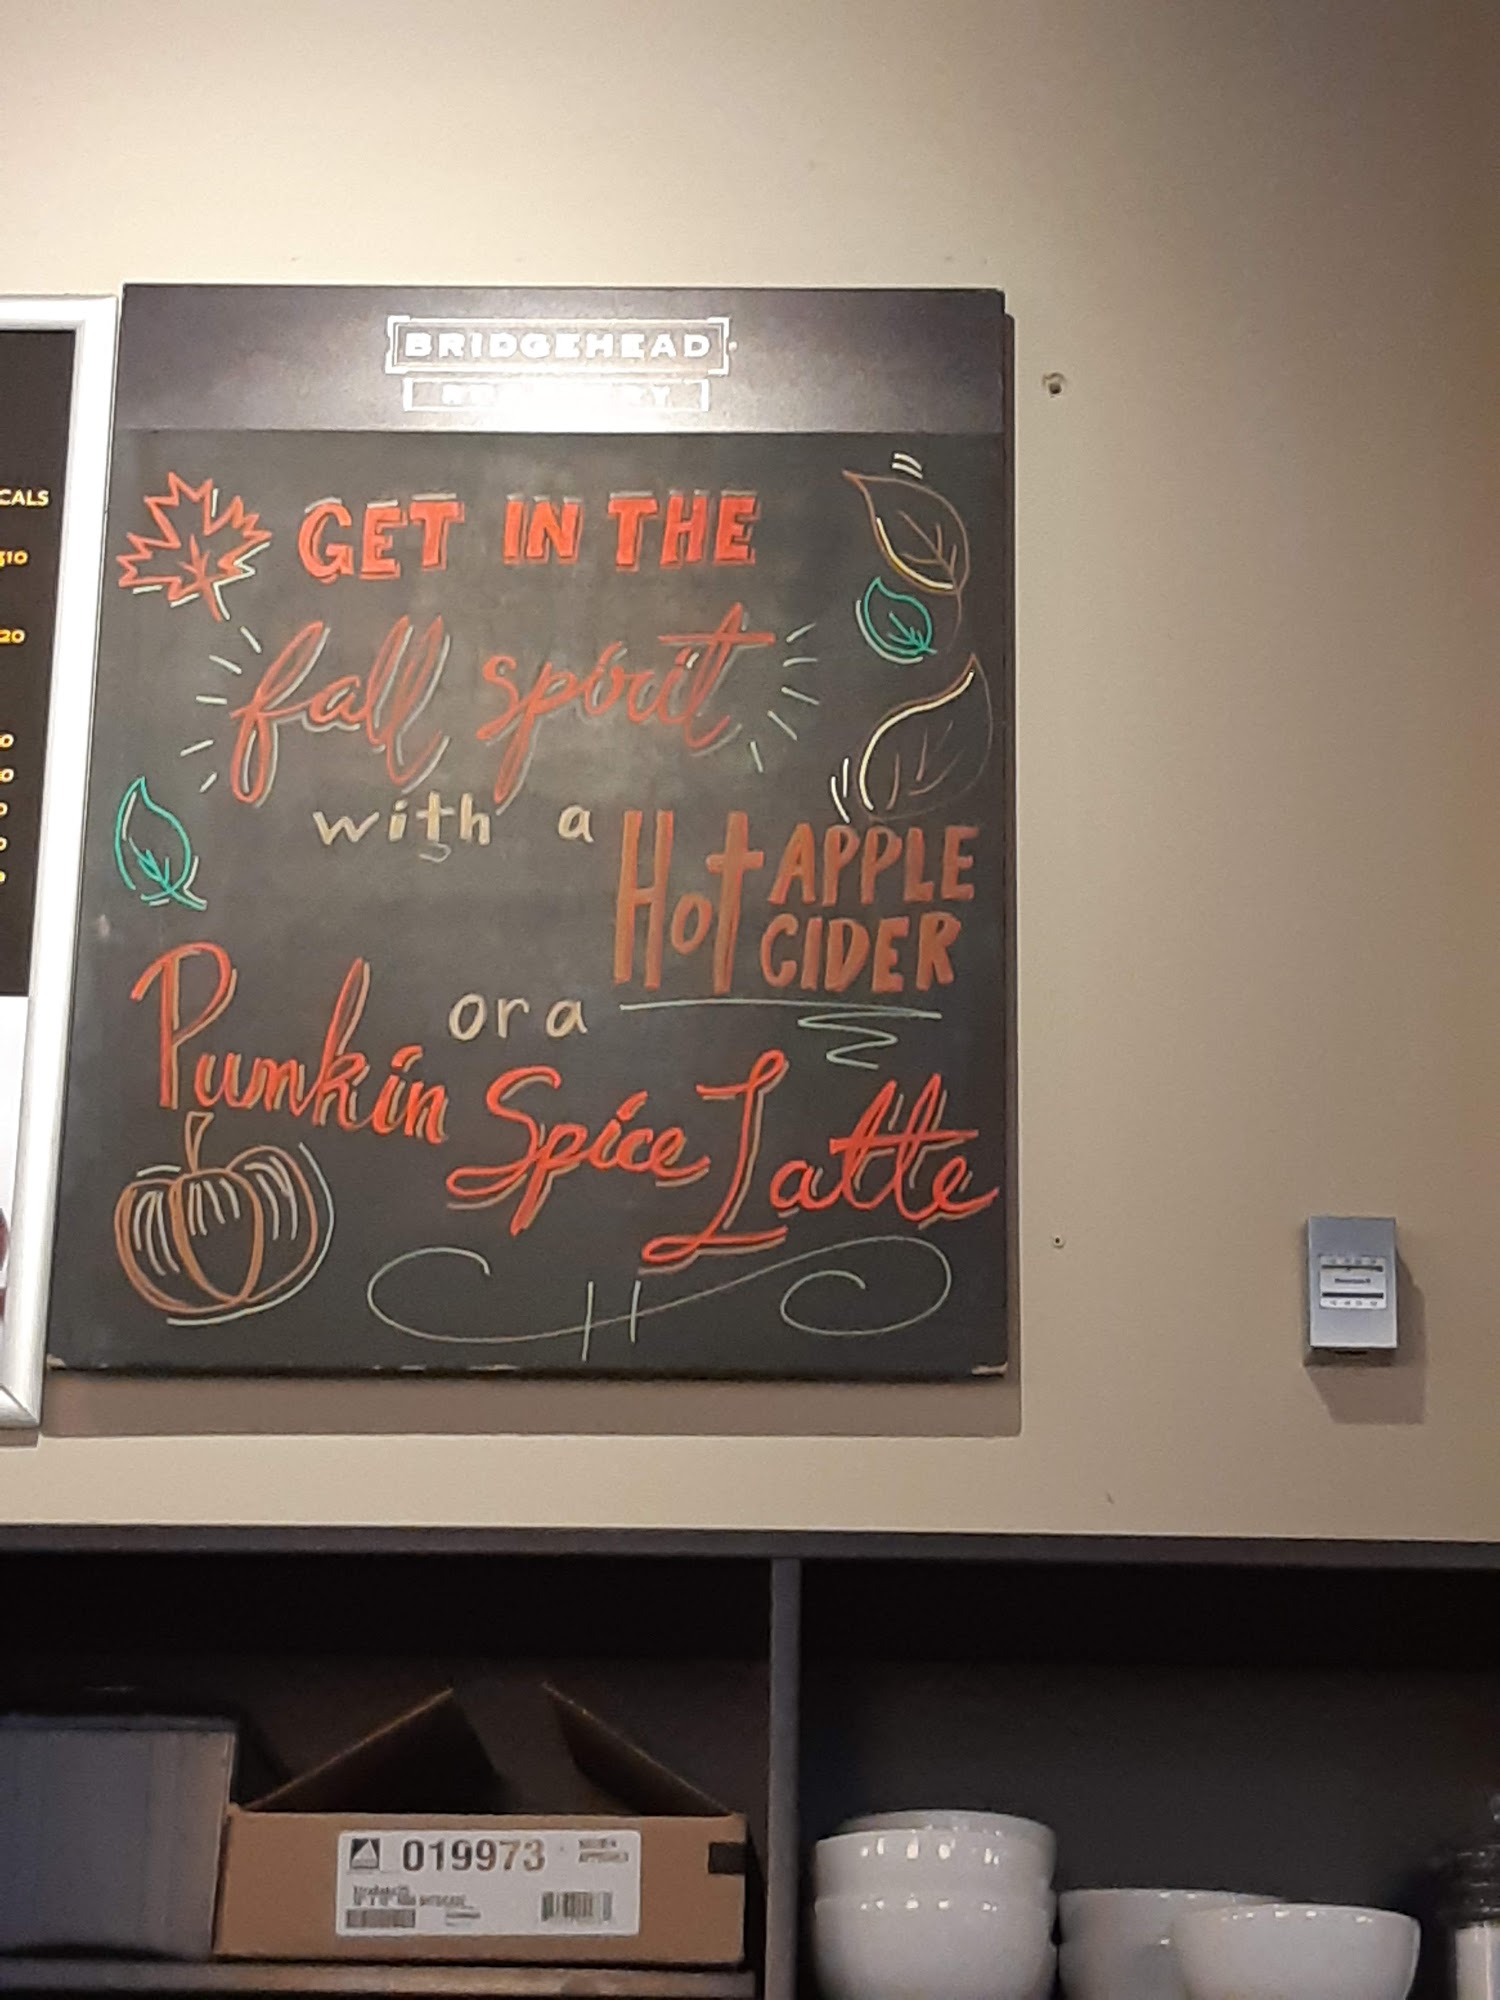 BRIDGEHEAD
GET IN THE
fall spirit
with a
Hot APPLE
CIDER
or a
Pumkin Spice Latte
CALS
$10
019973